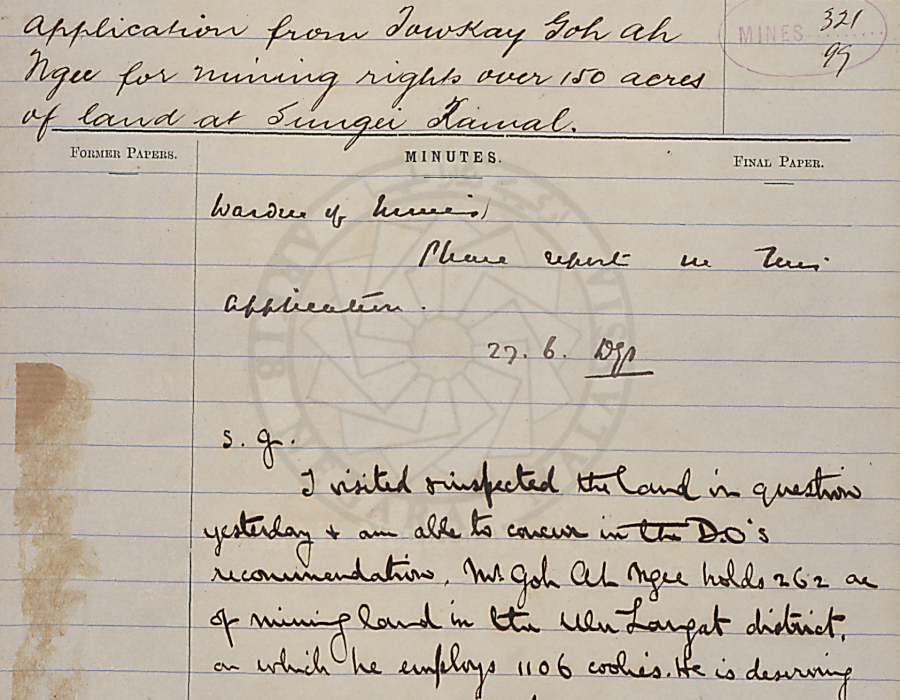 Application from Towkay Goh Ah
Ngee for mining rights over 150 acres
of land at Sungei Ramal.
MINES 321
99
FORMER PAPERS.
MINUTES.
FINAL PAPER.
Warden of Mines,
Please report on this
application.
27. 6.
S. G.
I visited & inspected the land in question
yesterday & am able to concur in the D.O's
recommendation. Mr Goh Ah Ngee holds 262 ac
of mining land in the Ulu Langat district,
on which he employs 1106 coolies. He is deserving